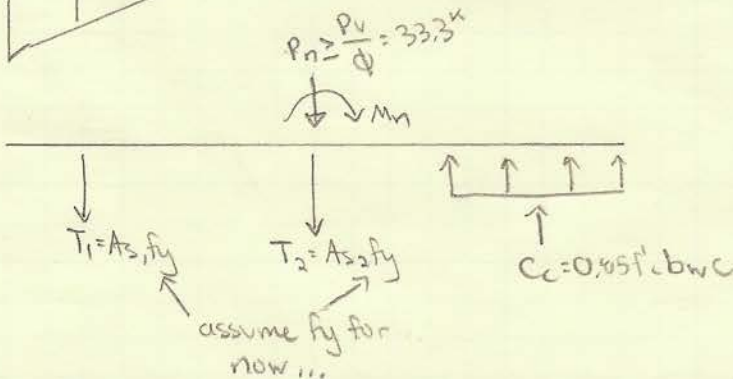 Pn ≥ Pu/ϕ = 33.3ᵏ
Mn
T₁=As₁fy
T₂=As₂fy
Cc=0.85f'c bw c
assume fy for
now...